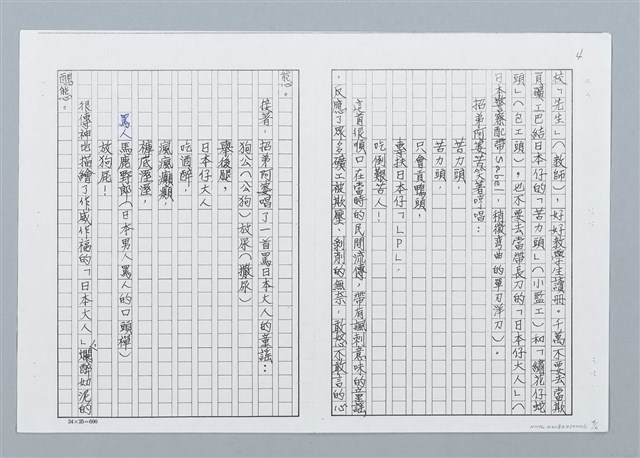 4
校「先生」(教師),好好教學生讀冊。千萬不要去當欺
負礦工巴結日本仔的「苦力頭」(小監工)和「繡花仔蛇
頭」(包工頭),也不要去當帶長刀的「日本仔大人」(
日本警察配帶Sabel,稍微彎曲的單刃洋刀)。
招弟阿婆苦笑著哼唱:
苦力頭,
苦力頭,
只會貢鴨頭,
專扶日本仔「LP」,
吃倒艱苦人!
這首很順口在當時的民間流傳,帶有諷刺意味的童謠
,反應了眾多礦工被欺壓、剝削的無奈,敢怒不敢言的心
態。
接著,招弟阿婆唱了一首罵日本大人的童謠:
狗公(公狗)放尿(撒尿)
翹後腿,
日本仔大人
吃酒醉,
瘋瘋癲癲,
褲底溼溼,
罵人馬鹿野郎(日本男人罵人的口頭禪)
放狗屁!
很傳神地描繪了作威作福的「日本大人」爛醉如泥的
醜態。
24×25=600